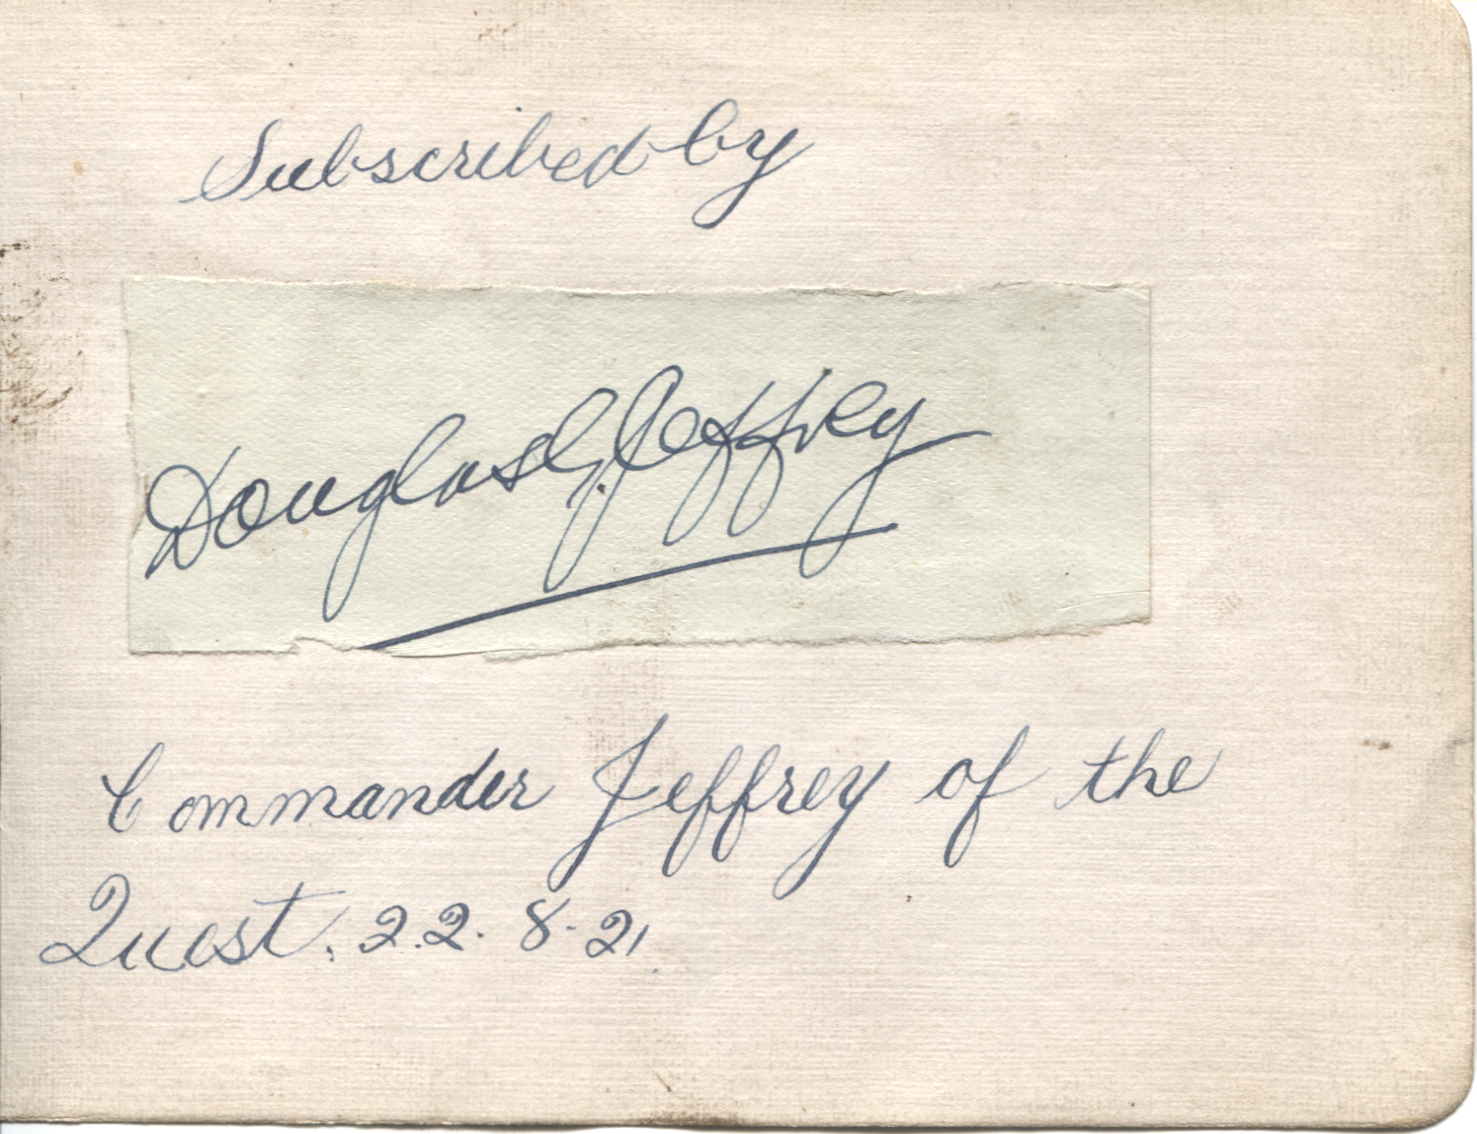 Subscribed by
Douglas G. Jeffrey
Commander Jeffrey of the
Quest. 22. 8-21